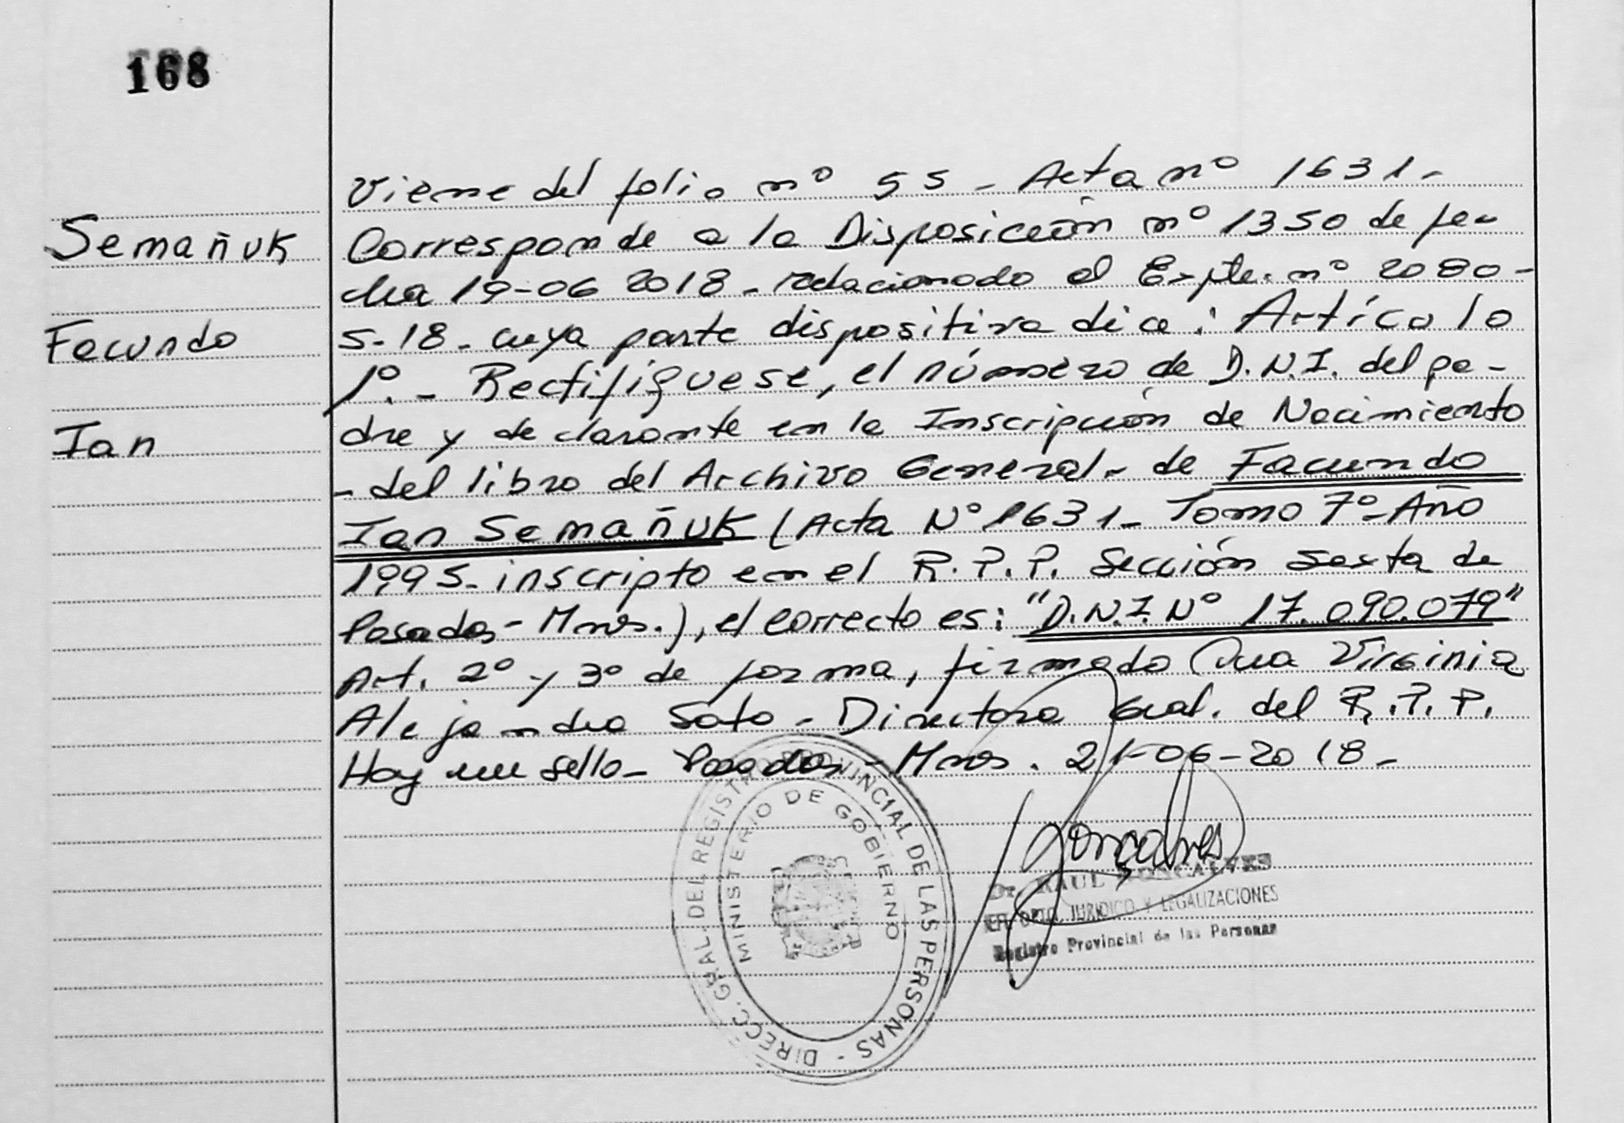 168
Semañuk
Facundo
Ian
Viene del folio nº 55 - Acta nº 1631.-
Corresponde a la Disposición nº 1350 de fe-
cha 19-06 2018 - relacionado al Expte. nº 2080-
S-18 - cuya parte dispositiva dice: Artículo
1º.- Rectifiquese, el número de D.N.I. del pa-
dre y declarante en la Inscripción de Nacimiento
- del libro del Archivo General - de Facundo
Ian Semañuk (Acta Nº 1631 - Tomo 7º - Año
1995 - inscripto en el R.P.P. Sección Sexta de
Posadas - Mnes.), el correcto es: "D.N.I. Nº 17.090.079"
Art. 2º y 3º de forma, firmado Dra Virginia
Alejandra Soto - Directora Gral. del R.P.P.
Hay un sello - Posadas - Mnes. 21-06-2018 -
DIRECC. GRAL. DEL REGISTRO PROVINCIAL DE LAS PERSONAS -
MINISTERIO DE GOBIERNO
Gonçalves
Dr. RAUL GONCALVES
DPTO. JURIDICO Y LEGALIZACIONES
Registro Provincial de las Personas